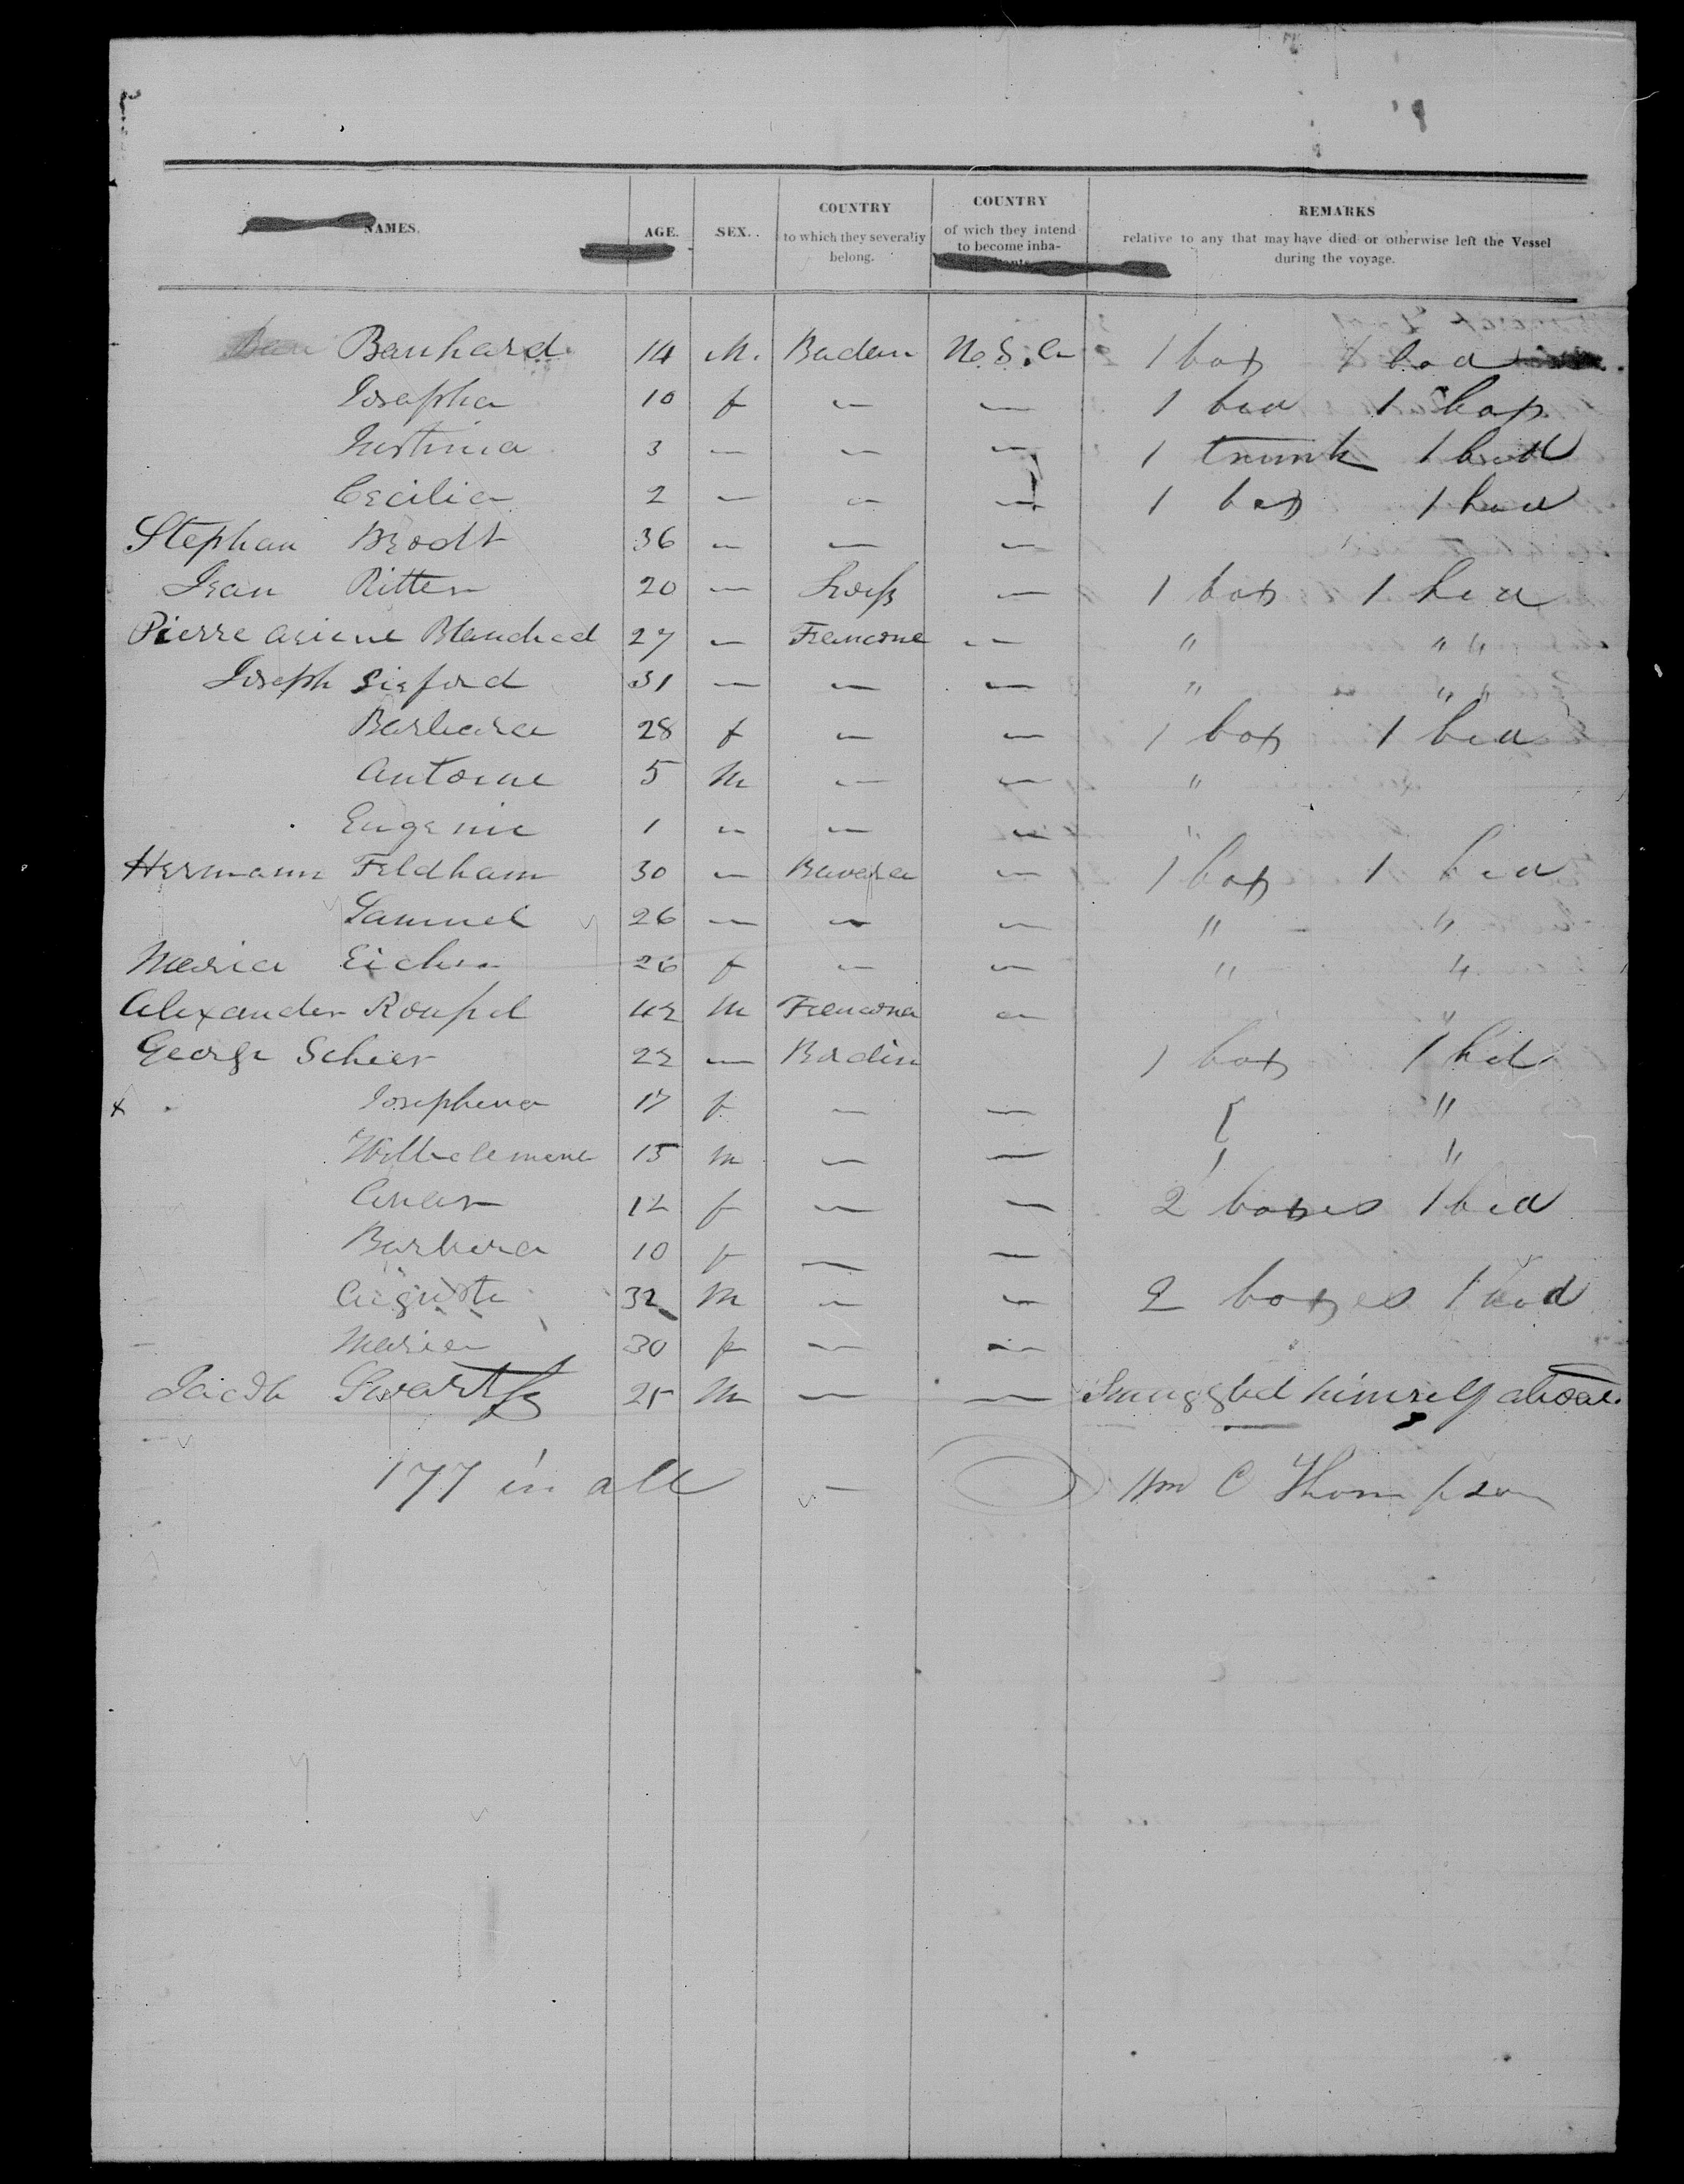 NAMES. AGE. SEX. COUNTRY to which they severaliy belong. COUNTRY of wich they intend to become inha- REMARKS relative to any that may have died or otherwise left the Vessel during the voyage.
Banhard 14 M. Baden 1 box 1 bed
Josepha 10 f — — 1 bed 1 box
Justinia 3 — — — 1 trunk 1 bed
Cecilia 2 — — — 1 box 1 bed
Stephan Brodt 36 — — —
Jean Ritter 20 — — 1 box 1 bed
Pierre Blanched 27 — — " " "
Joseph Sieford 31 — — — " " "
Barbara 28 f — — 1 box 1 bed
Antoine 5 M — — "
Eugenie 1 — — — "
Hermann Feldham 30 — 1 box 1 bed
Samuel 26 — — — " "
Maria Eicher 26 f — — " "
Alexander 42 M — "
George Scheer 22 — 1 box 1 bed
x Josephena 17 f — — "
15 m — — "
12 f — — 2 boxes 1 bed
Barbera 10 f — —
Auguste 32 M — — 2 boxes 1 bed
Maria 30 f — —
Jacob Swartz 25 M — — Smuggled himself aboard
177 in all — Wm C Thompson